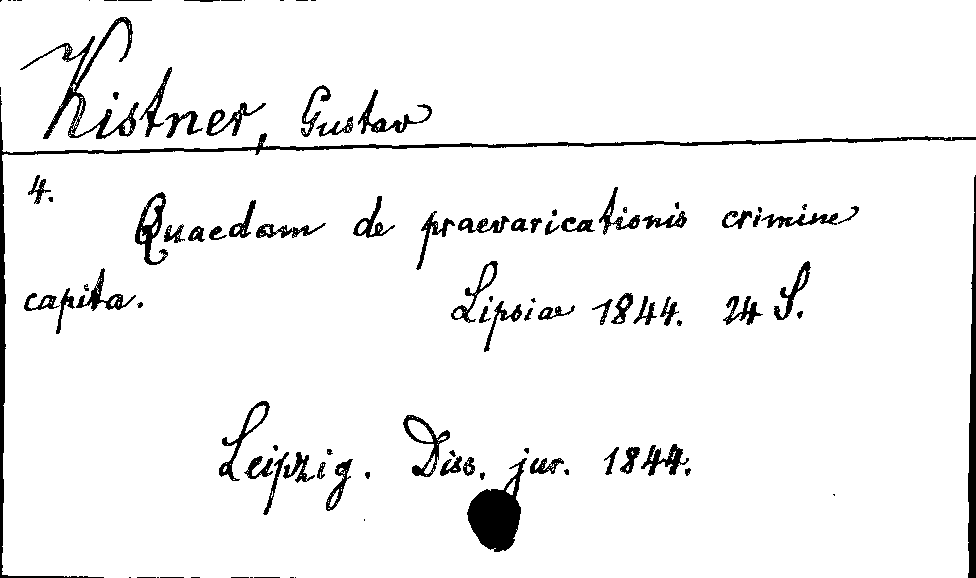 Kistner, Gustav
4.
Quaedam de praevaricationis crimine
capita. Lipsiae 1844. 24 S.
Leipzig. Diss. jur. 1844.